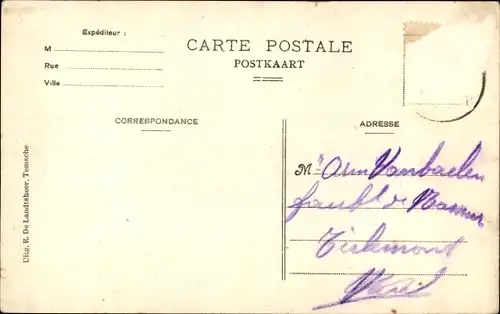 Expéditeur :
M
Rue
Ville
CARTE POSTALE
POSTKAART
CORRESPONDANCE
ADRESSE
Uitg. E. De Landtsheer, Temsche
M Vanbaelen
faubg de Namur
Tirlemont